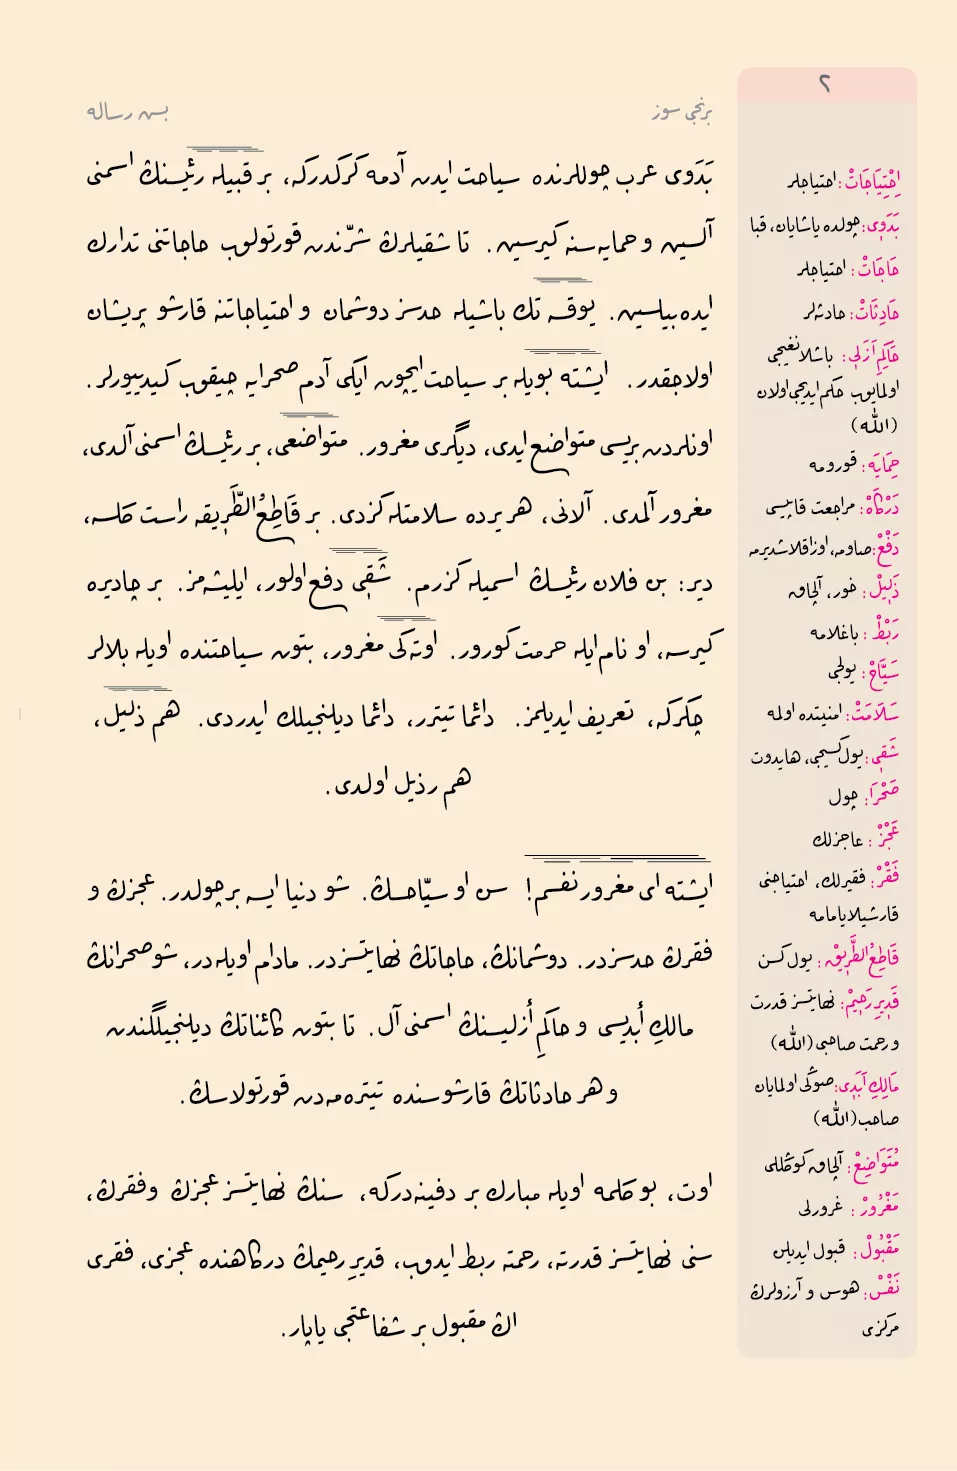 ٢
برنجی سوز
بسه رساله
بَدَوی عرب چوللرنده سیاحت ایدن آدمه کرکدرکه، بر قبیله رئیسنڭ اسمنی
آلسین و حمایه‌سنه کیرسین. تا شقیلرڭ شرّندن قورتولوب حاجاتنی تدارك
ایده‌بیلسین. یوقسه تك باشیله حدسز دوشمان و احتیاجاتنه قارشو پریشان
اولاجقدر. ایشته بویله بر سیاحت ایچون ایکی آدم صحرایه چیقوب کیدییورلر.
اونلردن بریسی متواضع ایدی، دیگری مغرور. متواضعی، بر رئیسڭ اسمنی آلدی،
مغرور آلمدی. آلانی، هر یرده سلامتله کزدی. بر قَاطِعُ الطَّرِیقه راست كلسه،
دیر: بن فلان رئیسڭ اسمیله کزرم. شَقِی دفع اولور، ایلیشه‌مز. بر چادیره
کیرسه، او نام ایله حرمت کورور. اوته‌کی مغرور، بتون سیاحتنده اویله بلالر
چکرکه، تعریف ایدیلمز. دائما تیترر، دائما دیلنجیلك ایدردی. هم ذلیل،
هم رذیل اولدی.
ایشته ای مغرور نفسم! سن او سیّاحسڭ. شو دنیا ایسه بر چولدر. عجزڭ و
فقرڭ حدسزدر. دوشمانڭ، حاجاتڭ نهایتسزدر. مادام اویله‌در، شو صحرانڭ
مالكِ أبدیسی و حاكمِ أزلیسنڭ اسمنی آل. تا بتون كائناتڭ دیلنجیلگندن
و هر حادثاتڭ قارشوسنده تیتره‌مه‌دن قورتولاسڭ.
اوت، بو كلمه اویله مبارك بر دفینه‌درکه، سنڭ نهایتسز عجزڭ و فقرڭ،
سنی نهایتسز قدرته، رحمته ربط ایدوب، قدیرِ رحیمڭ درگاهنده عجزی، فقری
اڭ مقبول بر شفاعتجی یاپار.
اِحْتِیَاجَاتْ: احتیاجلر
بَدَوِی: چولده یاشایان، قبا
حَاجَاتْ: احتیاجلر
حَادِثَاتْ: حادثه‌لر
حَاكِمِ اَزَلِی: باشلانغیجی
اولمایوب حكم ایدیجی اولان
(اللّٰه)
حِمَایَه: قورومه
دَرْگَاهْ: مراجعت قاپیسی
دَفْعْ: صاومه، اوزاقلاشدیرمه
ذَلِیلْ: خور، آلچاق
رَبْطْ: باغلامه
سَیَّاحْ: یولجی
سَلَامَتْ: امنیتده اولمه
شَقِی: یول كسیجی، هایدوت
صَحْرَا: چول
عَجْزْ: عاجزلك
فَقْرْ: فقیرلك، احتیاجنی
قارشیلایامامه
قَاطِعُ الطَّرِیقْ: یول كسن
قَدِیرِ رَحِیمْ: نهایتسز قدرت
و رحمت صاحبی (اللّٰه)
مَالِكِ اَبَدِی: صوڭی اولمایان
صاحب (اللّٰه)
مُتَوَاضِعْ: آلچاق كوڭللی
مَغْرُورْ: غرورلی
مَقْبُولْ: قبول ایدیلن
نَفْسْ: هوس و آرزولرڭ
مركزی